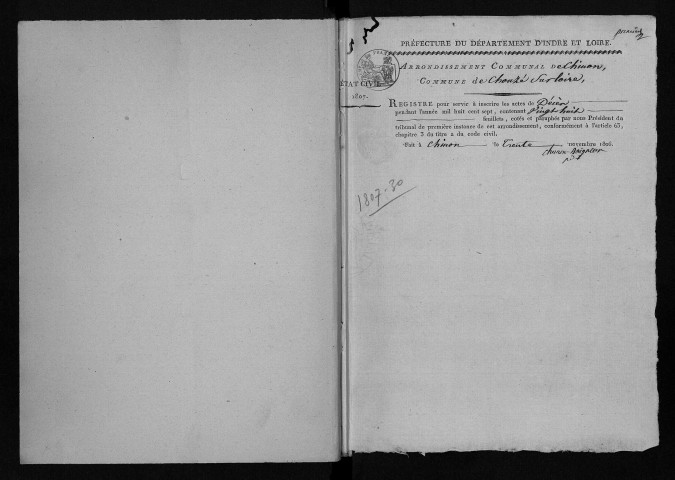 première
PRÉFECTURE DU DÉPARTEMENT D'INDRE ET LOIRE.
ARRONDISSEMENT COMMUNAL De Chinon,
COMMUNE de Chouzé Sur Loire,
ÉTAT CIVIL
1807.
REGISTRE pour servir à inscrire les actes de Décès
pendant l'année mil huit cent sept, contenant Vingt huit
feuillets, cotés et paraphés par nous Président du
tribunal de première instance de cet arrondissement, conformément à l'article 63,
chapitre 3 du titre 2 du code civil.
Fait à Chinon le Trente novembre 1806.
1807-30